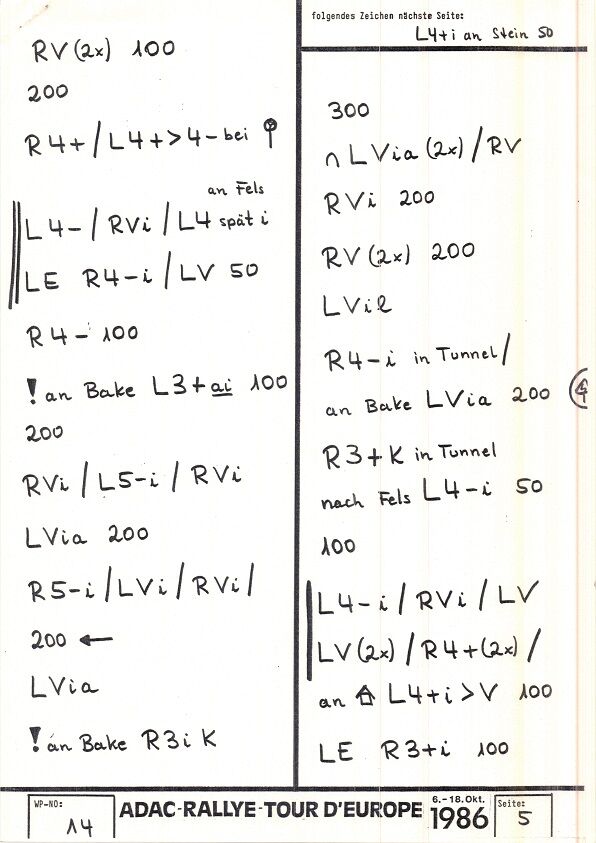 RV (2x) 100
200
R4+ / L4+ > 4- bei
an Fels
L4- / RVi / L4 spät i
LE R4-i / LV 50
R4- 100
! an Bake L3+ ai 100
200
RVi / L5-i / RVi
LVia 200
R5-i / LVi / RVi /
200 ←
LVia
! an Bake R3i K
folgendes Zeichen nächste Seite:
L4+i an Stein 50
300
∩ LVia (2x) / RV
RVi 200
RV (2x) 200
LVil
R4-i in Tunnel /
an Bake LVia 200
R3+K in Tunnel
nach Fels L4-i 50
100
L4-i / RVi / LV
LV (2x) / R4+ (2x) /
an L4+i > V 100
LE R3+i 100
WP-NO:
14
ADAC-RALLYE-TOUR D'EUROPE
6.-18.Okt.
1986
Seite:
5